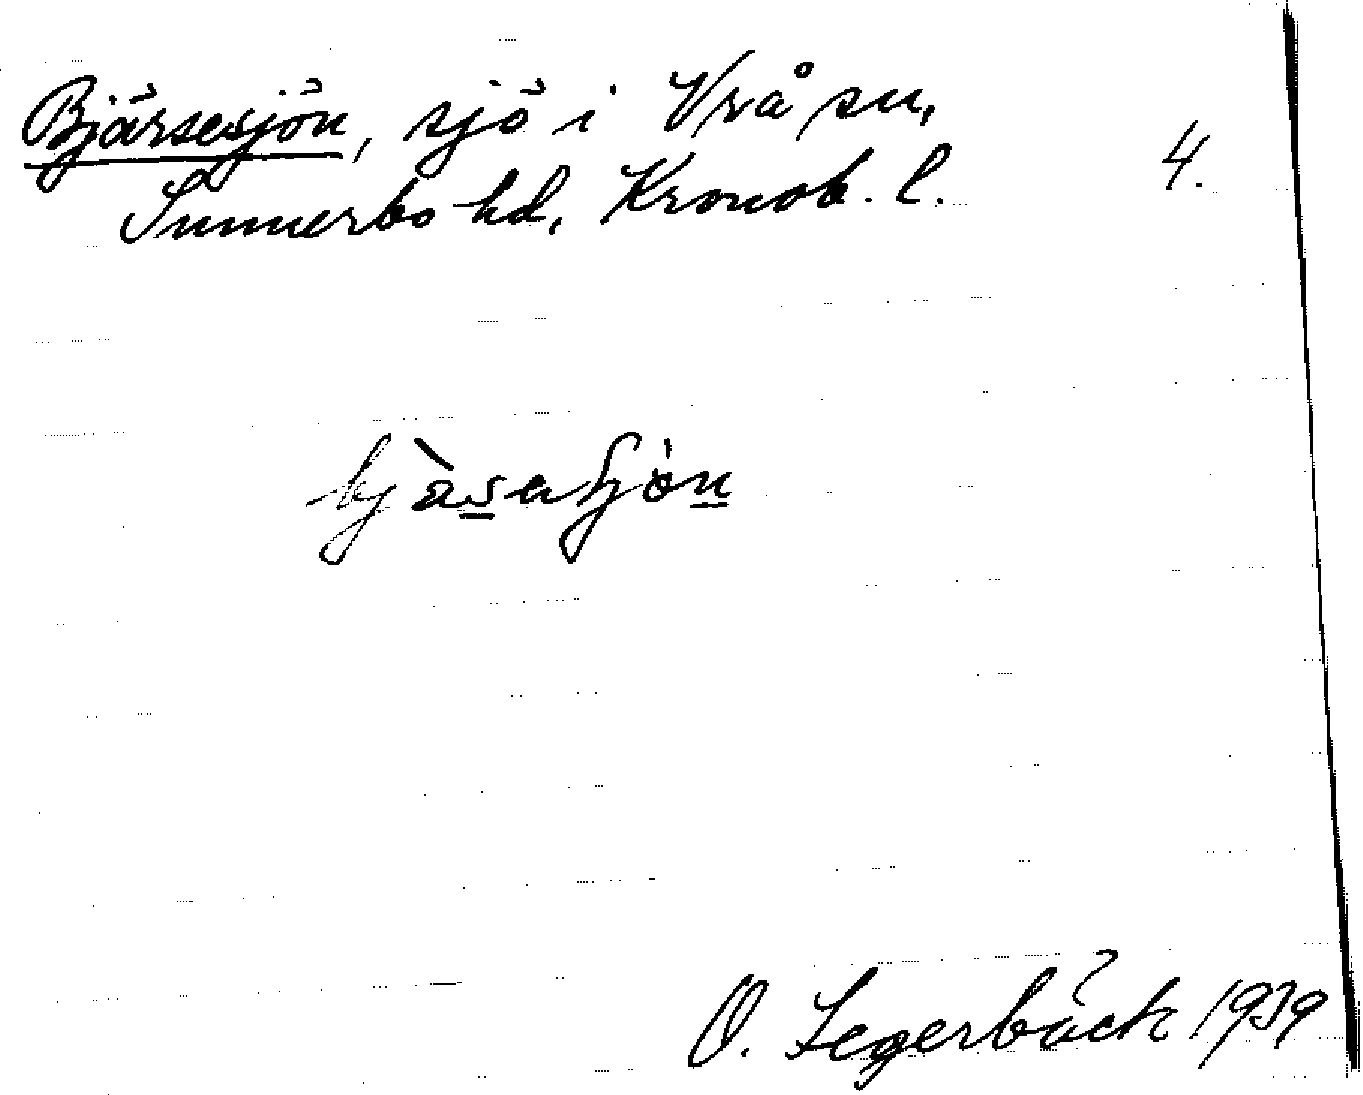 Bjärsesjön, sjö i Vrå sn,
4.
Sunnerbo hd, Kronob. l.
bjàsaʃjön
O. Segerbäck 1939